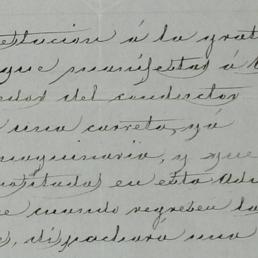 estucion á la grat
que manifestas á
edor del conductor
una carreta, ya
maquinaria, y que
ositadas en esta Adu
e cuando regresen la
s, despachará una